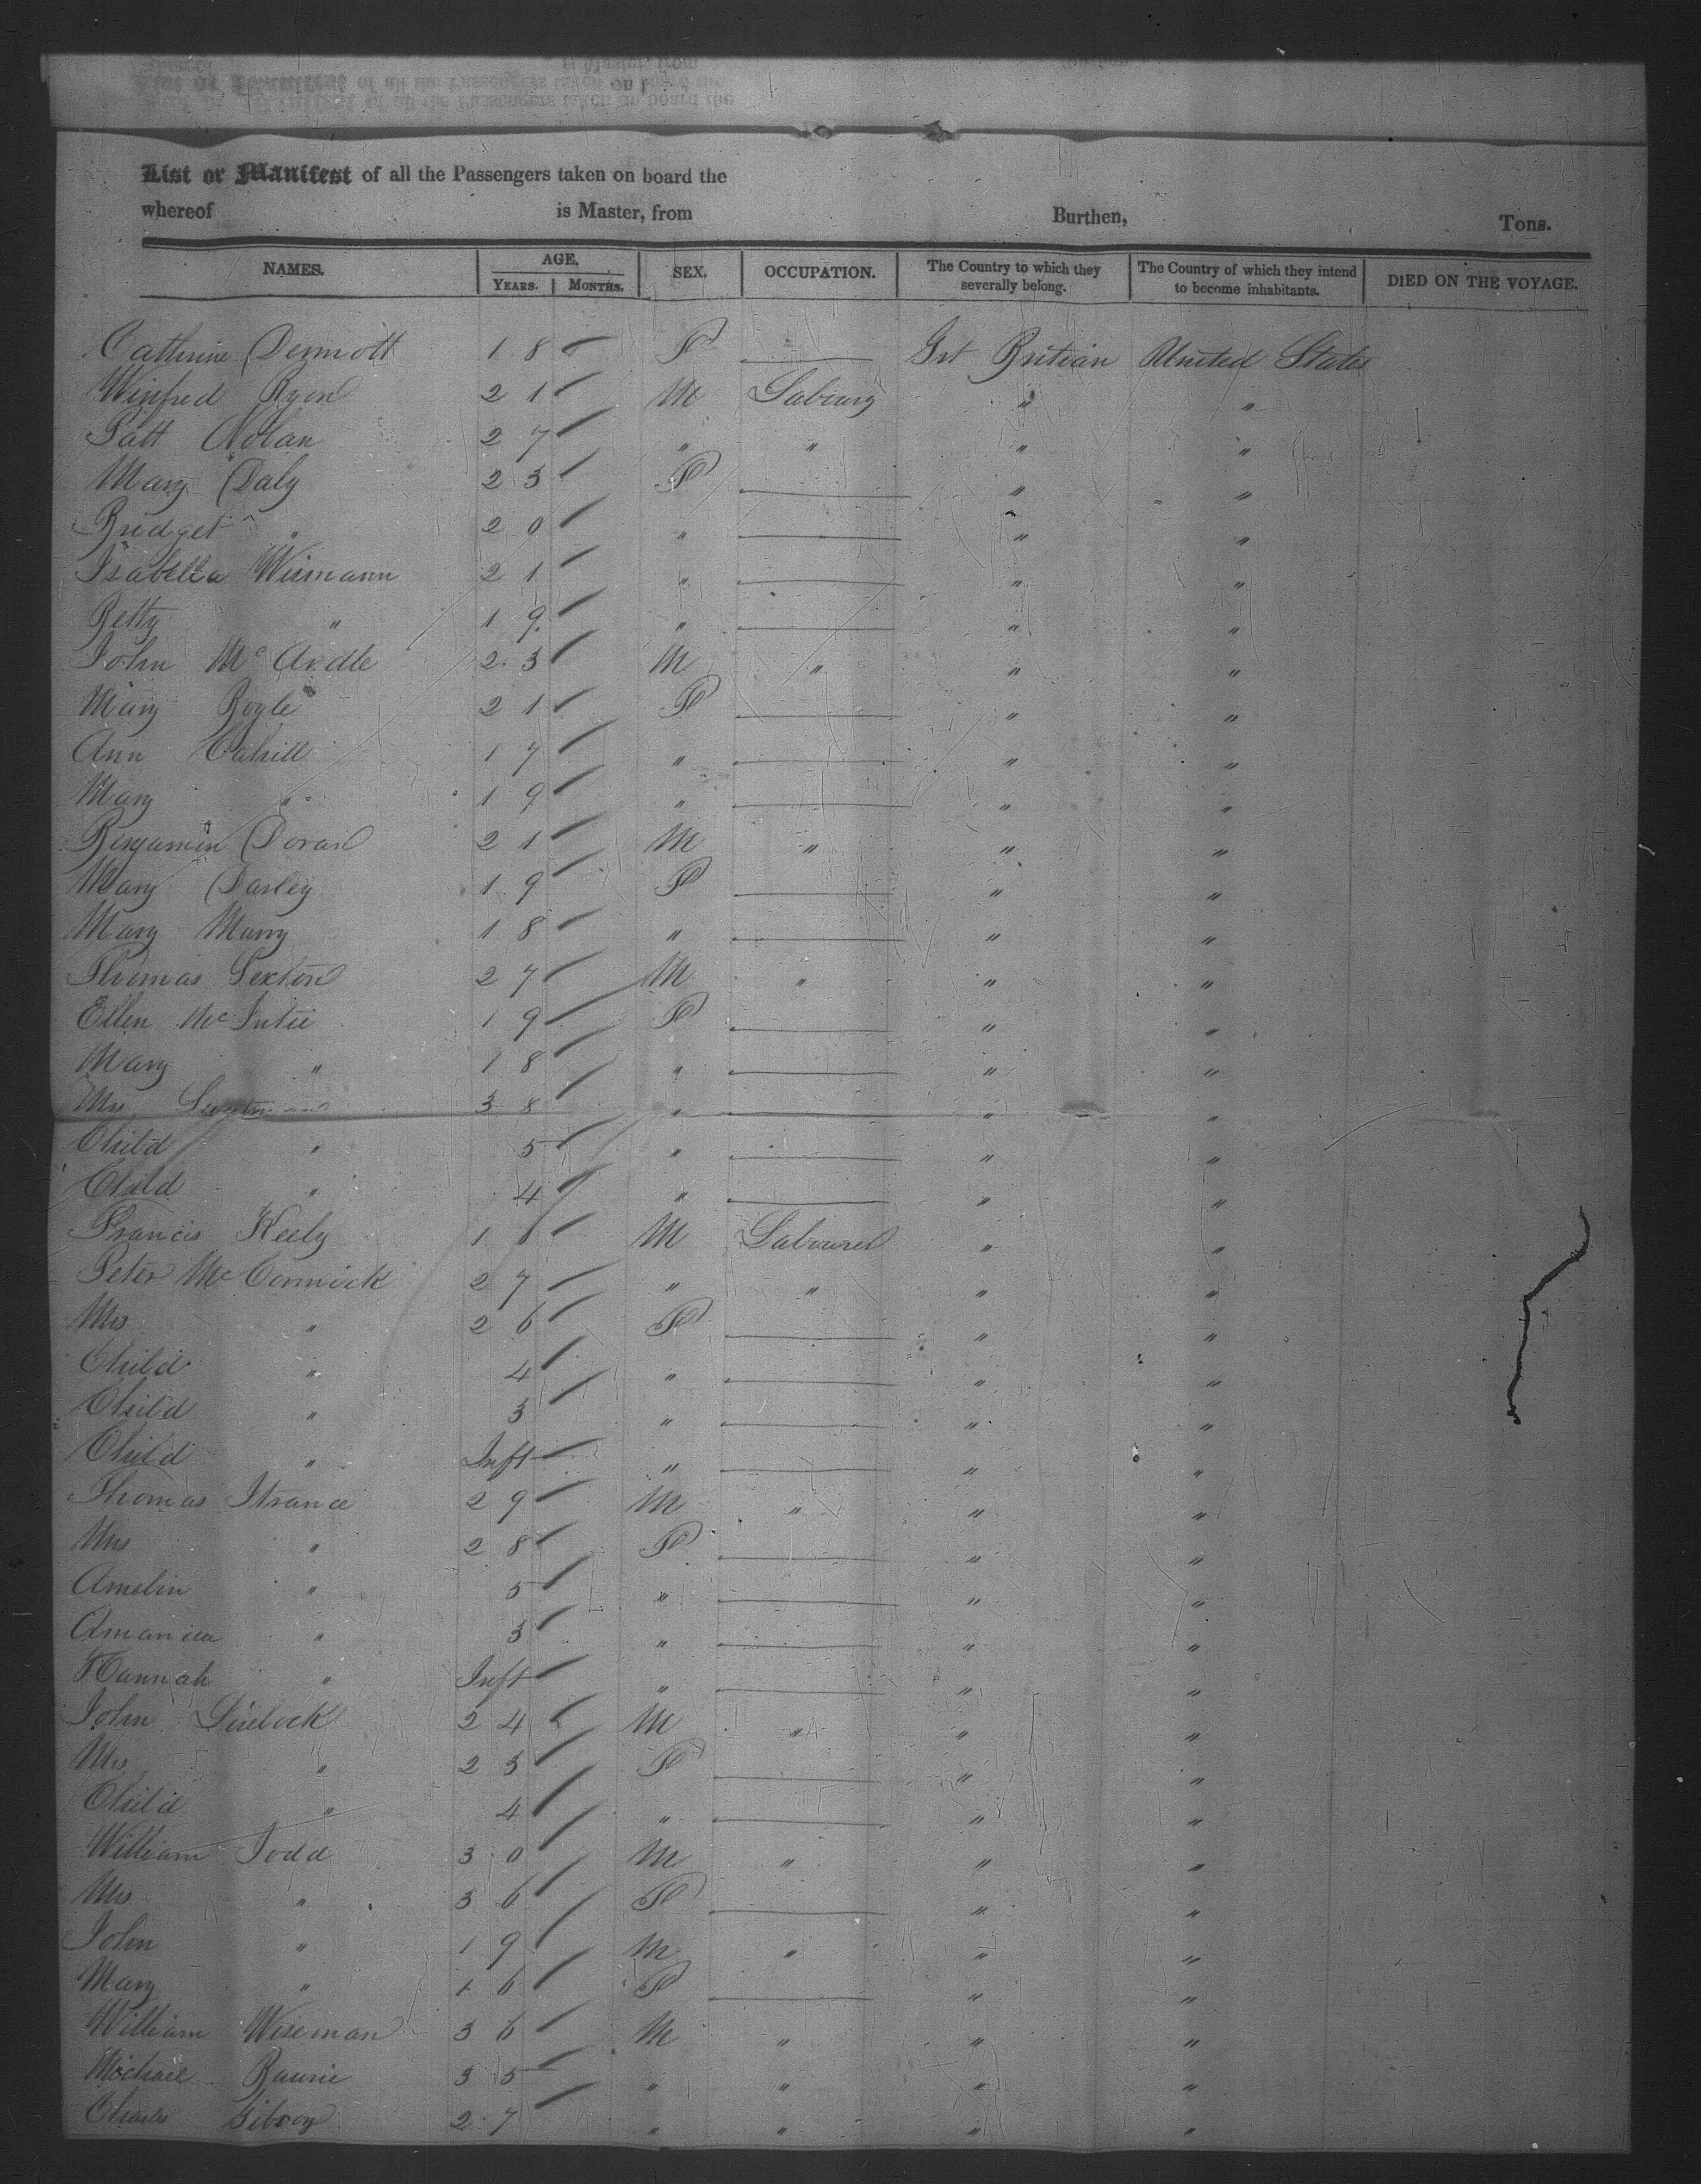 List or Manifest of all the Passengers taken on board the
whereof is Master, from Burthen, Tons.
NAMES. AGE. YEARS. MONTHS. SEX. OCCUPATION. The Country to which they severally belong. The Country of which they intend to become inhabitants. DIED ON THE VOYAGE.
Catherine Dermott 18 F Grt Britian United States
Winfred Ryan 21 M " "
Patt Nolan 27 " " " "
Mary Daly 23 F " "
Bridget " 20 " " "
Isabella Wismann 21 " " "
Betty " 19 " " "
John McArdle 23 M " " "
Mary Boyle 21 F " "
Ann Cahill 17 " " "
Mary " 19 " " "
Benjamin Doran 21 M " " "
Mary Darley 19 F " "
Mary Murry 18 " " "
Thomas Sexton 27 M " " "
Ellen McIntie 19 F " "
Mary " 18 " " "
Mrs 38 " " "
Child " 5 " " "
Child " 4 " " "
Francis Keely 1 M Labourer " "
Peter McCormick 27 " " " "
Mrs " 26 F " "
Child " 4 " " "
Child " 3 " " "
Child " Inft " " "
Thomas Strance 29 M " " "
Mrs " 28 F " "
Amelin " 5 " " "
" 3 " " "
Hannah " Inft " " "
John 24 M " " "
Mrs " 23 F " "
Child " 4 " " "
William Todd 30 M " " "
Mrs " 36 F " "
John " 19 M " " "
Mary " 16 F " "
William Wiseman 36 M " " "
Michael 35 " " " "
Charles Gibson 27 " " " "